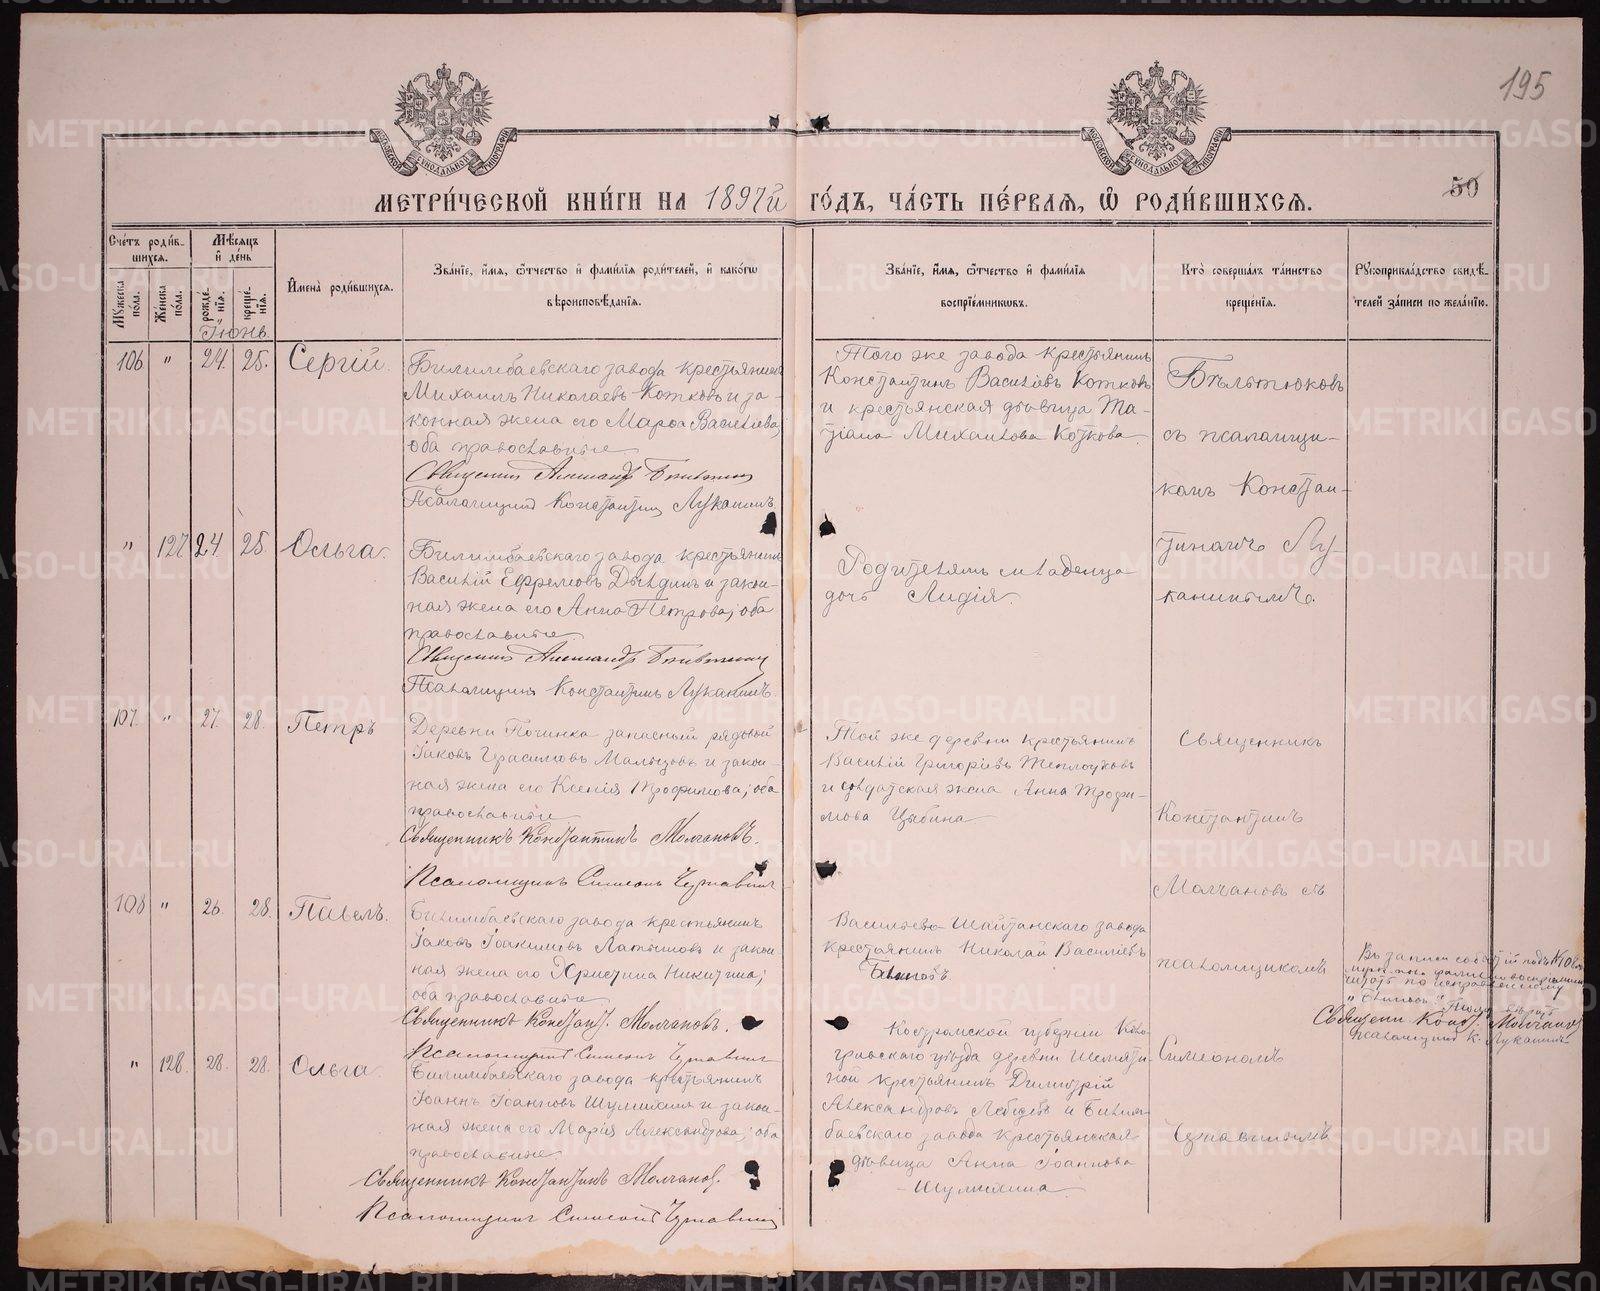 195
50
МЕТРИ́ЧЕСКОЙ КНИ́ГИ НА 1897й ГО́ДЪ, ЧА́СТЬ ПЕ́РВАЯ, Ѡ РОДИ́ВШИХСЯ.
Сче́тъ роди́вшихся.
Мужеска пола.
Женска пола.
Мѣсяцъ и день
рождения.
крещения.
Имена̀ роди́вшихся.
Зва́нїе, и́мя, о́тчество и фами́лїя роди́телей, и како́гѡ
вѣроисповѣ́данїя.
Зва́нїе, и́мя, о́тчество и фами́лїя
воспрїе́мниковъ.
Кто̀ соверша́лъ та́инство
креще́нїя.
Рукоприкла́дство свидѣ́-
телей за́писи по жела́нїю.
Іюнь
106 " 24. 25. Сергій.
Билимбаевскаго завода крестьянинъ
Михаилъ Николаевъ Котковъ и за-
конная жена его Марѳа Васильева;
оба православные
Священникъ Александр
Псаломщикъ Константинъ Луканинъ
Того же завода крестьянинъ
Константинъ Василіевъ Котковъ
и крестьянская дѣвица Та-
тіана Михаилова Коткова.
съ псаломщи-
комъ Констан-
тиномъ Лу-
канинымъ.
" 127 24. 25. Ольга.
Билимбаевскаго завода крестьянинъ
Василій Ефремовъ и закон-
ная жена его Анна Петрова; оба
православные
Священникъ Александр
Псаломщикъ Константинъ Луканинъ.
Родителямъ младенца
дочь Лидія.
107. " 27. 28. Петръ
Деревни Починка запасный рядовой
Іаковъ Герасимовъ Мальцовъ и закон-
ная жена его Ксенія Трофимова; оба
православные
Священникъ Константинъ Молчановъ.
Псаломщикъ Симеонъ
Той же деревни крестьянинъ
Василій Григоріевъ Теплоуховъ
и солдатская жена Анна Трофи-
мова Цыбина
Священникъ
Константинъ
Молчановъ съ
псаломщикомъ
Симеономъ
108 " 26. 28. Павелъ.
Билимбаевскаго завода крестьянинъ
Іаковъ Іоакимовъ Латышовъ и закон-
ная жена его Христина Никитина;
оба православные
Священникъ Констант. Молчановъ.
Псаломщикъ Симеонъ
Васильево-Шайтанскаго завода
крестьянинъ Николай Василіевъ
Въ записи событій подъ № 108
читать по исправленному
Священ. Конст. Молчановъ
Псаломщикъ К. Луканинъ.
" 128. 28. 28. Ольга.
Билимбаевскаго завода крестьянинъ
Іоаннъ Іоанновъ Шулинъ и закон-
ная жена его Марія Александрова; оба
православные.
Священникъ Константинъ Молчанов.
Псаломщикъ Симеонъ
Костромской губерніи Коло-
гривскаго уѣзда деревни
крестьянинъ Димитрій
Александровъ Лебедевъ и Билим-
баевскаго завода крестьянская
дѣвица Анна Іоаннова
METRIKI.GASO-URAL.RU